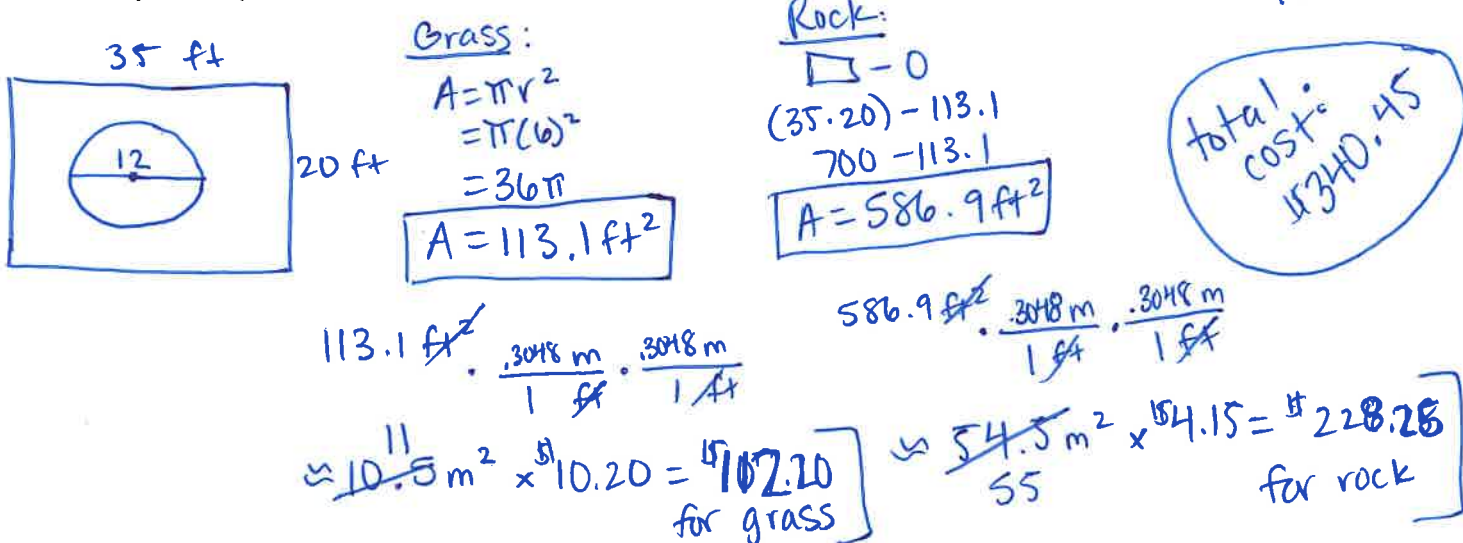 35 ft
12
20 ft
Grass:
A=πr²
=π(6)²
=36π
A=113.1ft²
113.1 ft² · .3048 m / 1 ft · .3048 m / 1 ft
≈ 10.5 11 m² × $10.20 = $102.20
for grass
Rock:
▭ - O
(35·20) - 113.1
700 - 113.1
A=586.9ft²
586.9 ft² · .3048 m / 1 ft · .3048 m / 1 ft
≈ 54.5 55 m² × $4.15 = $228.25
for rock
total
cost:
$340.45